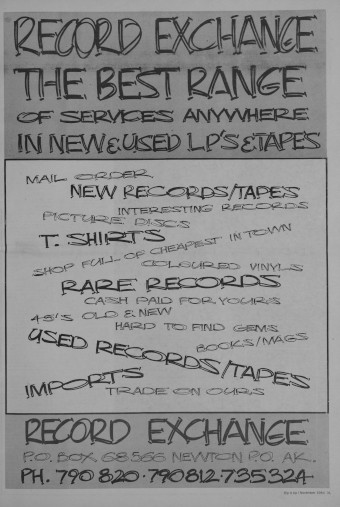 RECORD EXCHANGE
THE BEST RANGE
OF SERVICES ANYWHERE
IN NEW & USED L.P'S & TAPES
MAIL ORDER
NEW RECORDS/TAPES
INTERESTING RECORDS
PICTURE DISCS
T. SHIRTS
SHOP FULL OF CHEAPEST IN TOWN
COLOURED VINYLS
RARE RECORDS
CASH PAID FOR YOURS
45'S OLD & NEW
HARD TO FIND GEMS
BOOKS/MAGS
USED RECORDS/TAPES
IMPORTS
TRADE ON OURS
RECORD EXCHANGE
P.O. BOX 68.566 NEWTON P.O. AK.
PH. 790 820·790812·735324